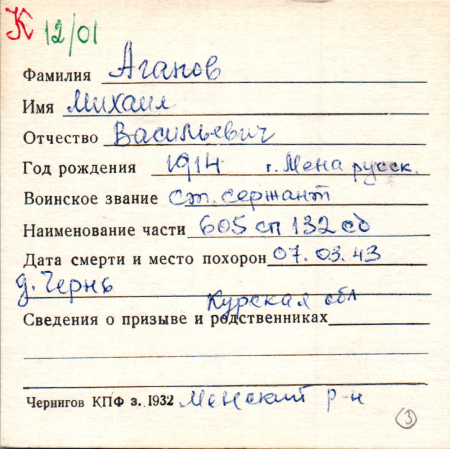 К 12/01
Фамилия Агапов
Имя Михаил
Отчество Васильевич
Год рождения 1914 г. Мена русск.
Воинское звание ст. сержант
Наименование части 605 сп 132 сд
Дата смерти и место похорон 07.03.43
д. Чернь
Курская обл
Сведения о призыве и родственниках
Чернигов КПФ з. 1932 Менский р-н
3